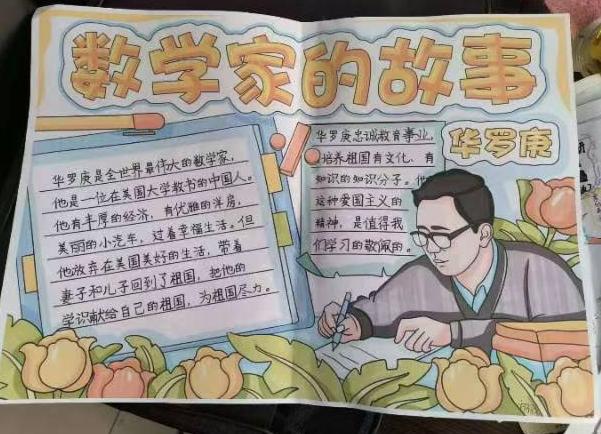 数学家的故事
华罗庚
华罗庚是全世界最伟大的数学家，
他是一位在美国大学教书的中国人。
他有丰厚的经济，有优雅的洋房，
美丽的小汽车，过着幸福生活。但
他放弃在美国美好的生活，带着
妻子和儿子回到了祖国，把他的
学识献给自己的祖国，为祖国尽力。
华罗庚忠诚教育事业，
培养祖国有文化、有
知识的知识分子。他
这种爱国主义的
精神，是值得我
们学习的敬佩的。